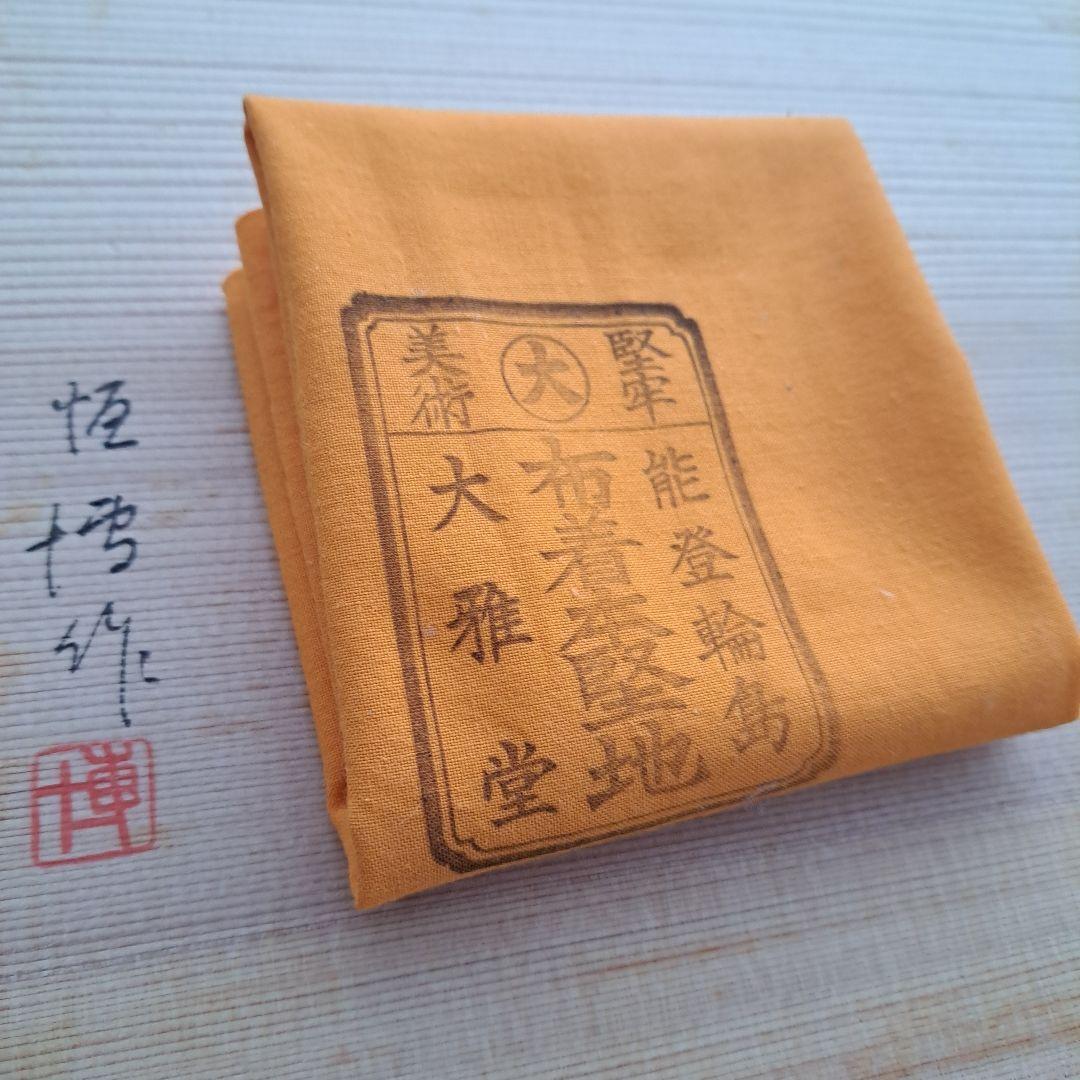 堅牢
大
美術
能登輪島
布着本堅地
大雅堂
恒博作
博